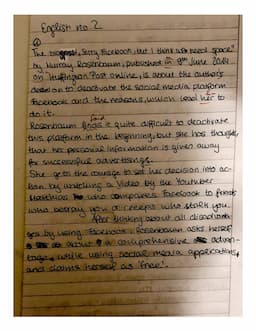 English no. 2
The blogpost, "Sorry Facebook, but I think we need space"
by Murray Rosenbaum, published in 9th June 2014
on "Huffington Post online, is about the author's
decision to deactivate the social media platform
Facebook and the reasons, which lead her to
do it.
Rosenbaum finds it quite difficult to deactivate
this platform in the beginning, but she has thoughts,
that her personal information is given away
for successful advertisings.
She gets the courage to set her decision into ac-
tion by watching a Video by the Youtuber
Matthias who compares Facebook to friends
who betray you or creeps who stalk you.
After thinking about all disadvanta-
ges by using Facebook, Rosenbaum asks herself
about a comprehensive advan-
tage while using social media applications,
and claims herself as "free".